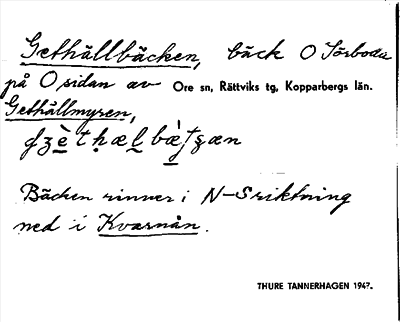 Gethällbäcken, bäck O Sörboda
på O sidan av Ore sn, Rättviks tg, Kopparbergs län.
Gethällmyren,
Bäcken rinner i N-Sriktning
ned i Kvarnån.
THURE TANNERHAGEN 1947.